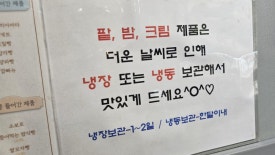 팥, 밤, 크림 제품은
더운 날씨로 인해
냉장 또는 냉동 보관해서
맛있게 드세요^O^♡
냉장보관-1~2일 / 냉동보관-한달이내